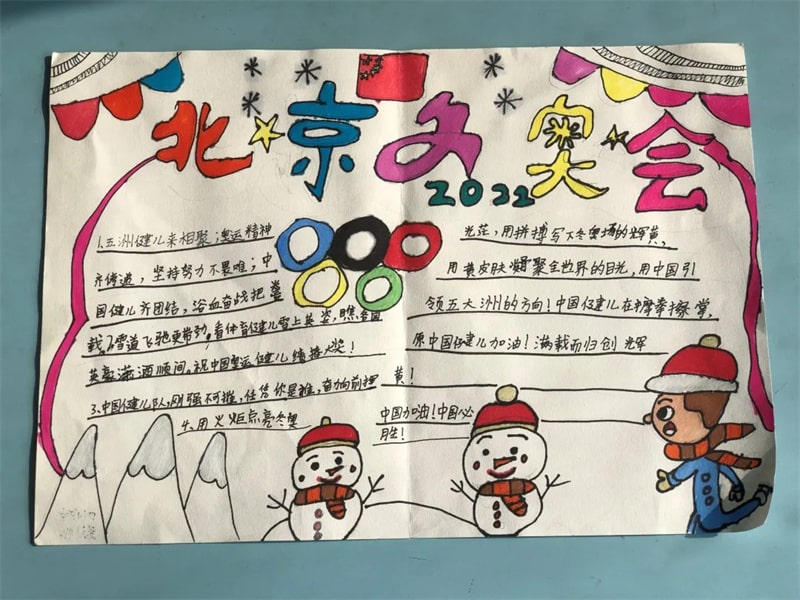 北京冬奥会
2022
1.五洲健儿来相聚;奥运精神
齐传递,坚持努力不畏难;中
国健儿齐团结,浴血奋战把誉
载。2.雪道飞驰更带劲,看体育健儿雪上英姿,瞧各国
英豪潇洒顺间。祝中国奥运健儿缔接火奖!
3.中国健儿队,刚强不可摧,任凭你是谁,奋力向前捍
4、用火炬点亮冬奥
光茫,用拼搏写下冬奥场的辉黄,
用黄皮肤凝聚全世界的目光,用中国引
领五大洲的方向!中国健儿在摩拳擦掌,
原中国健儿加油!满载而归创辉
黄!
中国加油!中国必
胜!